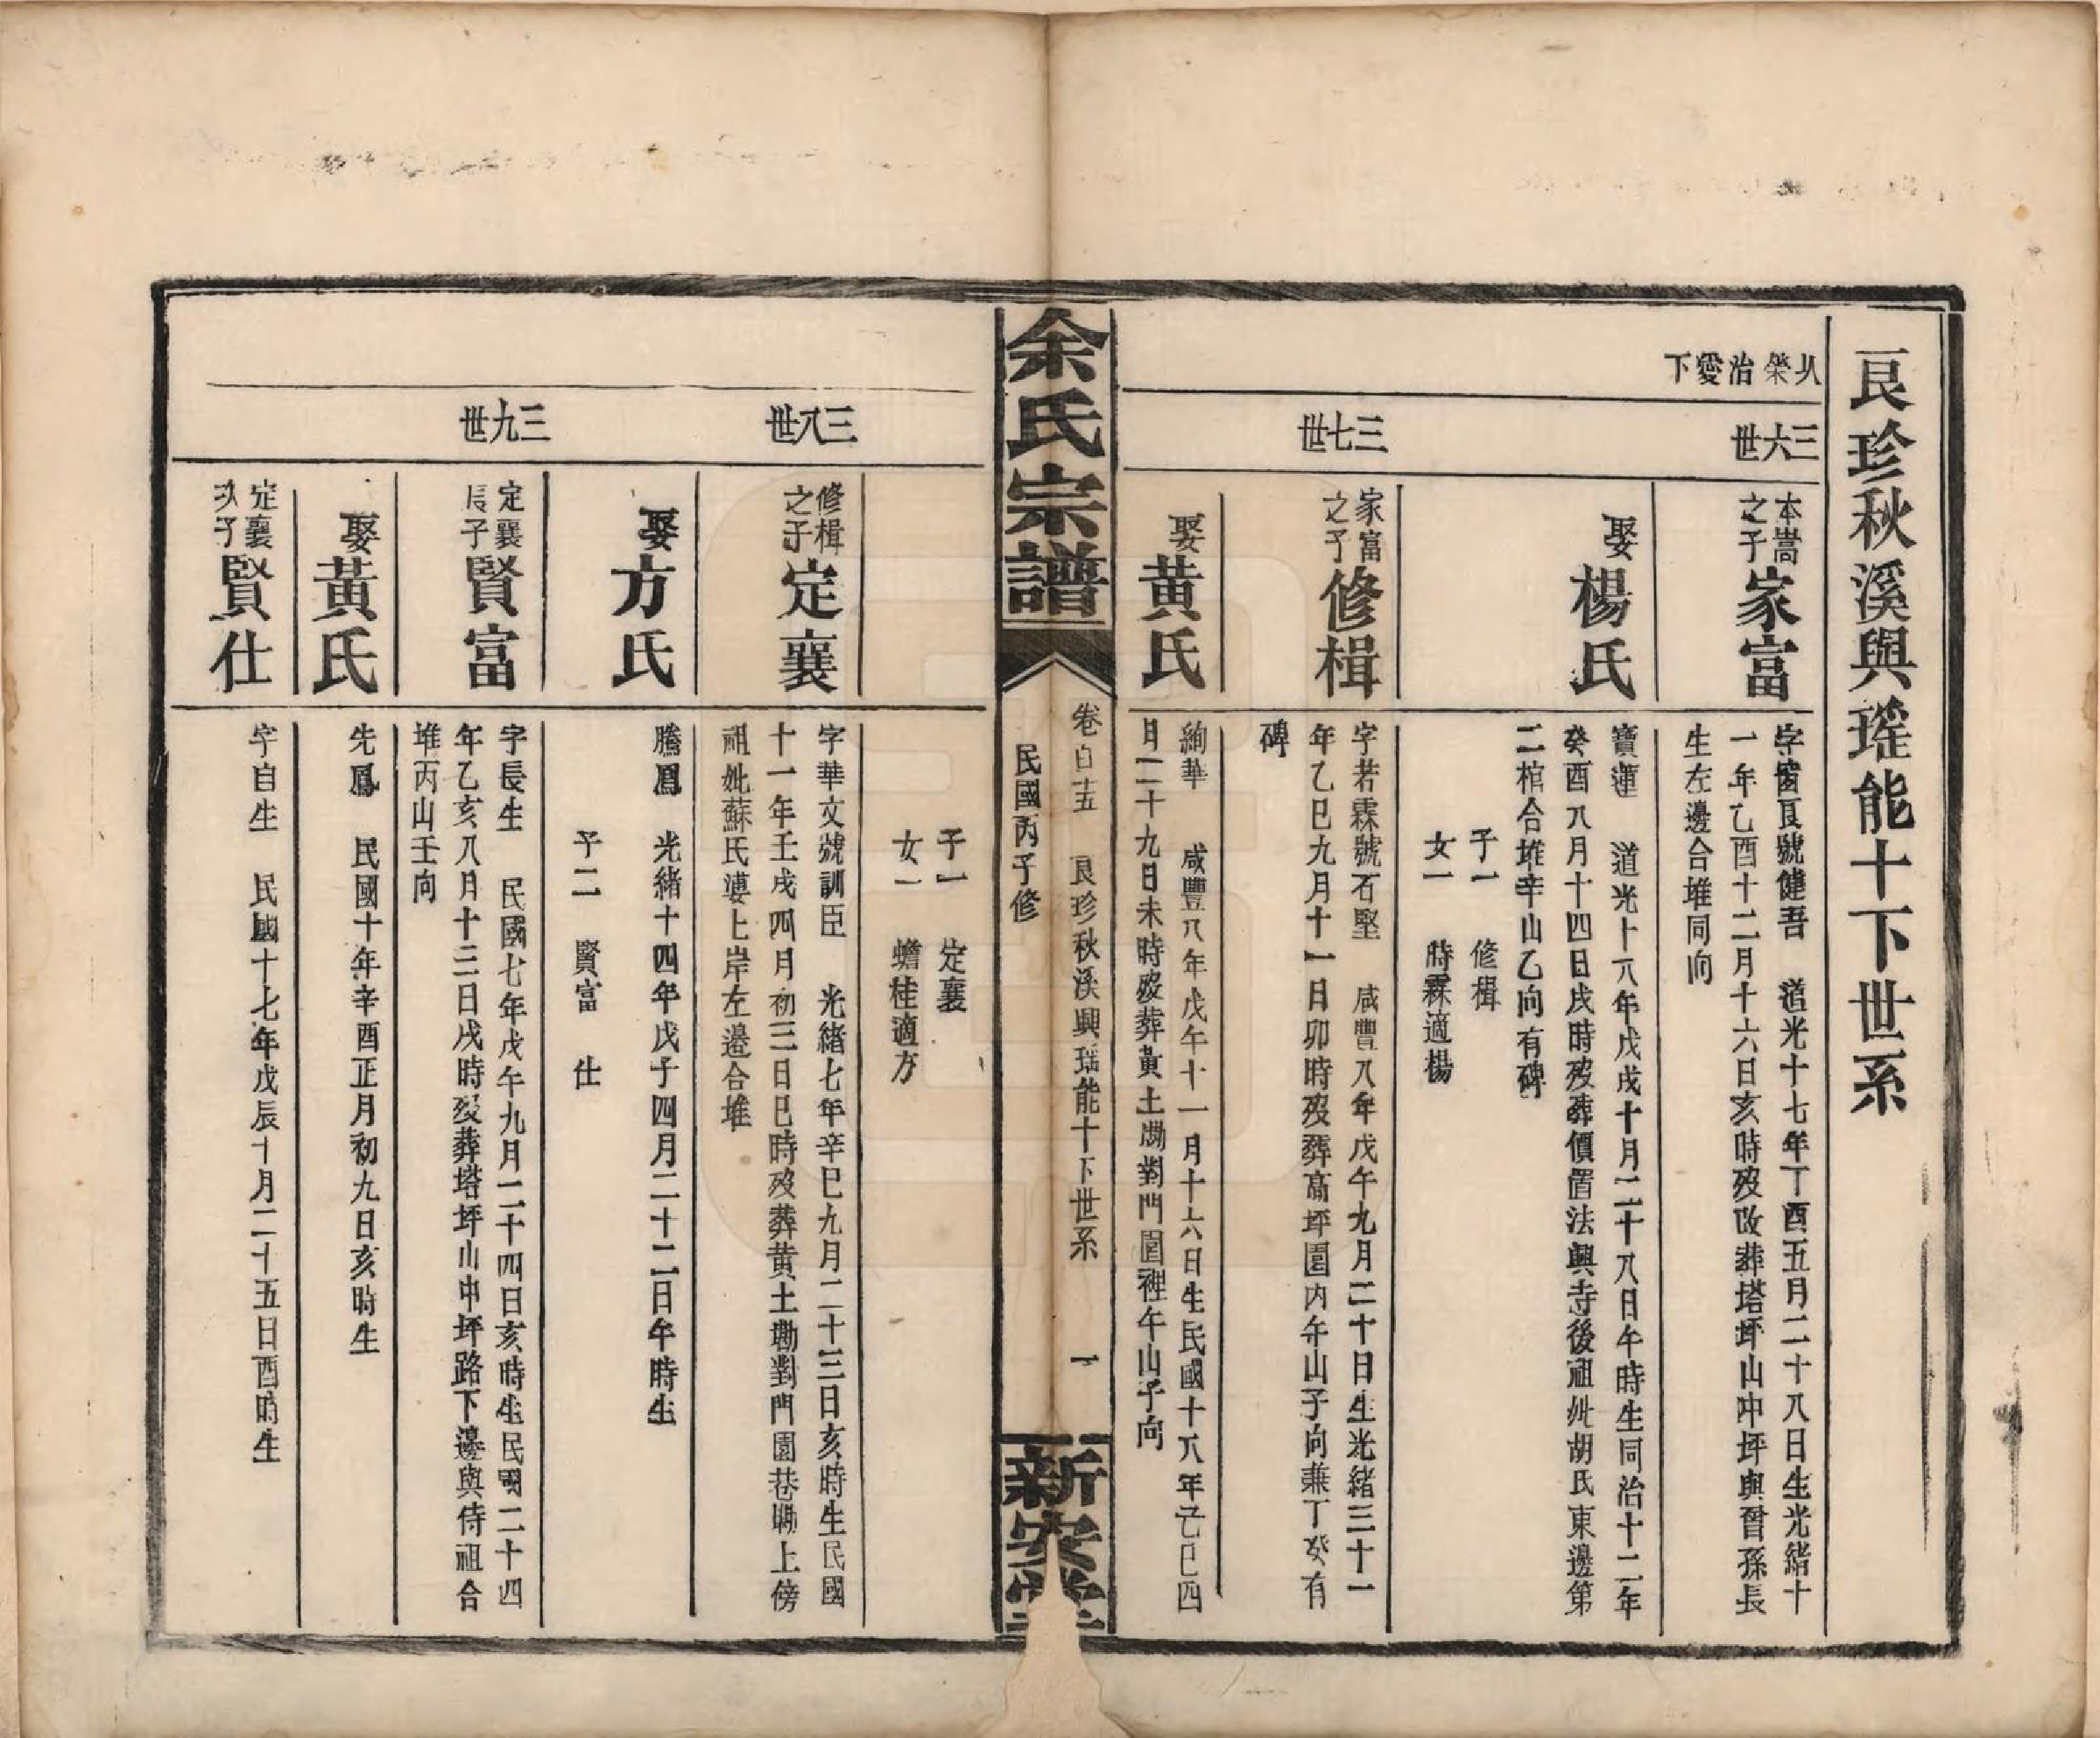 良珍秋溪與瑤能十下世系
㕥榮治變下
三六世
本嵩之子家富
字 良號健吾 道光十七年丁酉五月二十八日生光緒十
一年乙酉十二月十六日亥時歿改葬塔坪山冲坪與曾孫長
生左邊合堆同向
娶楊氏
寶蓮 道光十八年戊戌十月二十八日午時生同治十二年
癸酉八月十四日戌時歿葬價置法興寺後祖妣胡氏東邊第
二棺合堆辛山乙向有碑
子一 修楫
女一 時霖適楊
三七世
家富之子修楫
字若霖號石堅 咸豐八年戊午九月二十日生光緒三十一
年乙巳九月十一日卯時歿葬高坪園內午山子向兼丁癸有
碑
娶黃氏
絢華 咸豐八年戊午十一月十六日生民國十八年己巳四
月二十九日未時歿葬黃土墈對門園裡午山子向
余氏宗譜
卷百五 良珍秋溪興瑤能十下世系 一
民國丙子修
新安堂
子一 定襄
女一 蟾桂適方
三八世
修楫之子定襄
字華文號訓臣 光緒七年辛巳九月二十三日亥時生民國
十一年壬戌四月初三日巳時歿葬黃土墈對門園巷墈上傍
祖妣蘇氏塟上岸左邉合堆
娶方氏
騰鳳 光緒十四年戊子四月二十二日午時生
子二 賢富 仕
三九世
定襄長子賢富
字長生 民國七年戊午九月二十四日亥時生民國二十四
年乙亥八月十三日戌時歿葬塔坪山冲坪路下邊與侍祖合
堆丙山壬向
娶黃氏
先鳳 民國十年辛酉正月初九日亥時生
定襄次子賢仕
字自生 民國十七年戊辰十月二十五日酉時生